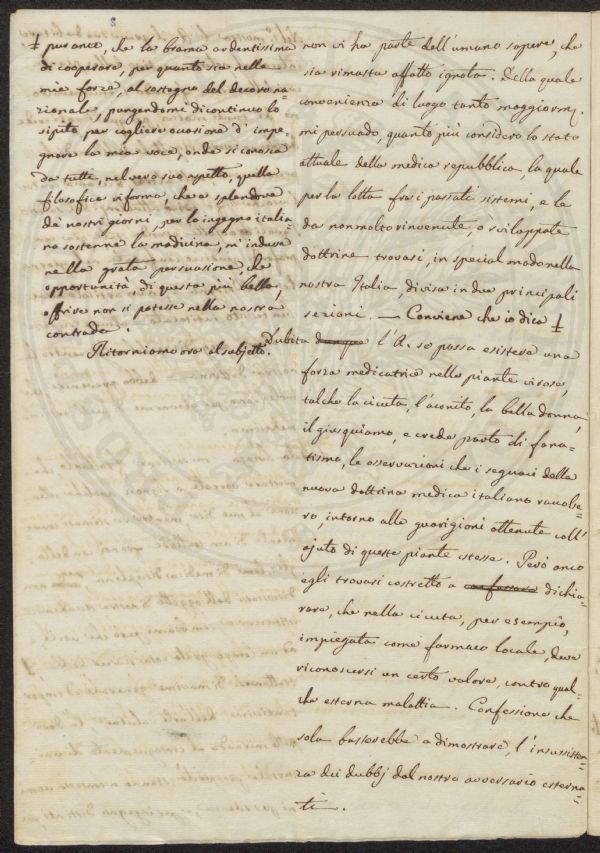 ‡ pur anco, che la brama ardentissima
di cooperare, per quanto sia nelle
mie forze, al sostegno del decoro na-
zionale, pungendomi di continuo lo
spirito per cogliere occasione d'impe-
gnare la mia voce, onde si conosca
da tutti, nel vero suo aspetto, quella
filosofica riforma, che a splendore
de' nostri giorni, per lo ingegno italia-
no sostenne la medicina, m'induce
nella grata persuasione che
opportunità, di questa più bella,
offrire non si potesse nella nostra
contrada.
Ritorniamo ora al subjetto.
non vi ha parte dell'umano sapere, che
sia rimasta affatto ignota. Della quale
convenienza di luogo tanto maggiorm.
mi persuado, quanto più considero lo stato
attuale della medica repubblica, la quale
per la lotta fra i passati sistemi, e le
da non molto rinvenute, o sviluppate
dottrine trovasi, in special modo nella
nostra Italia, divisa in due principali
sezioni. — Conviene che io dica ‡
Dubita dunque l'A. se possa esistere una
forza medicatrice nelle piante virose,
talche la cicuta, l'aconito, la belladonna,
il giusquiamo, e crede parto di fana-
tismo, le osservazioni che i seguaci della
nuova dottrina medica italiana raccolse-
ro, intorno alle guarigioni ottenute coll'
ajuto di queste piante istesse. Però anco
egli trovasi costretto a confessare dichia-
rare, che nella cicuta, per esempio,
impiegata come farmaco locale, deve
riconoscersi un certo valore, contro qual-
che esterna malattia. Confessione che
sola basterebbe a dimostrare, l'insussisten-
za dei dubbj dal nostro avversario esterna-
ti.